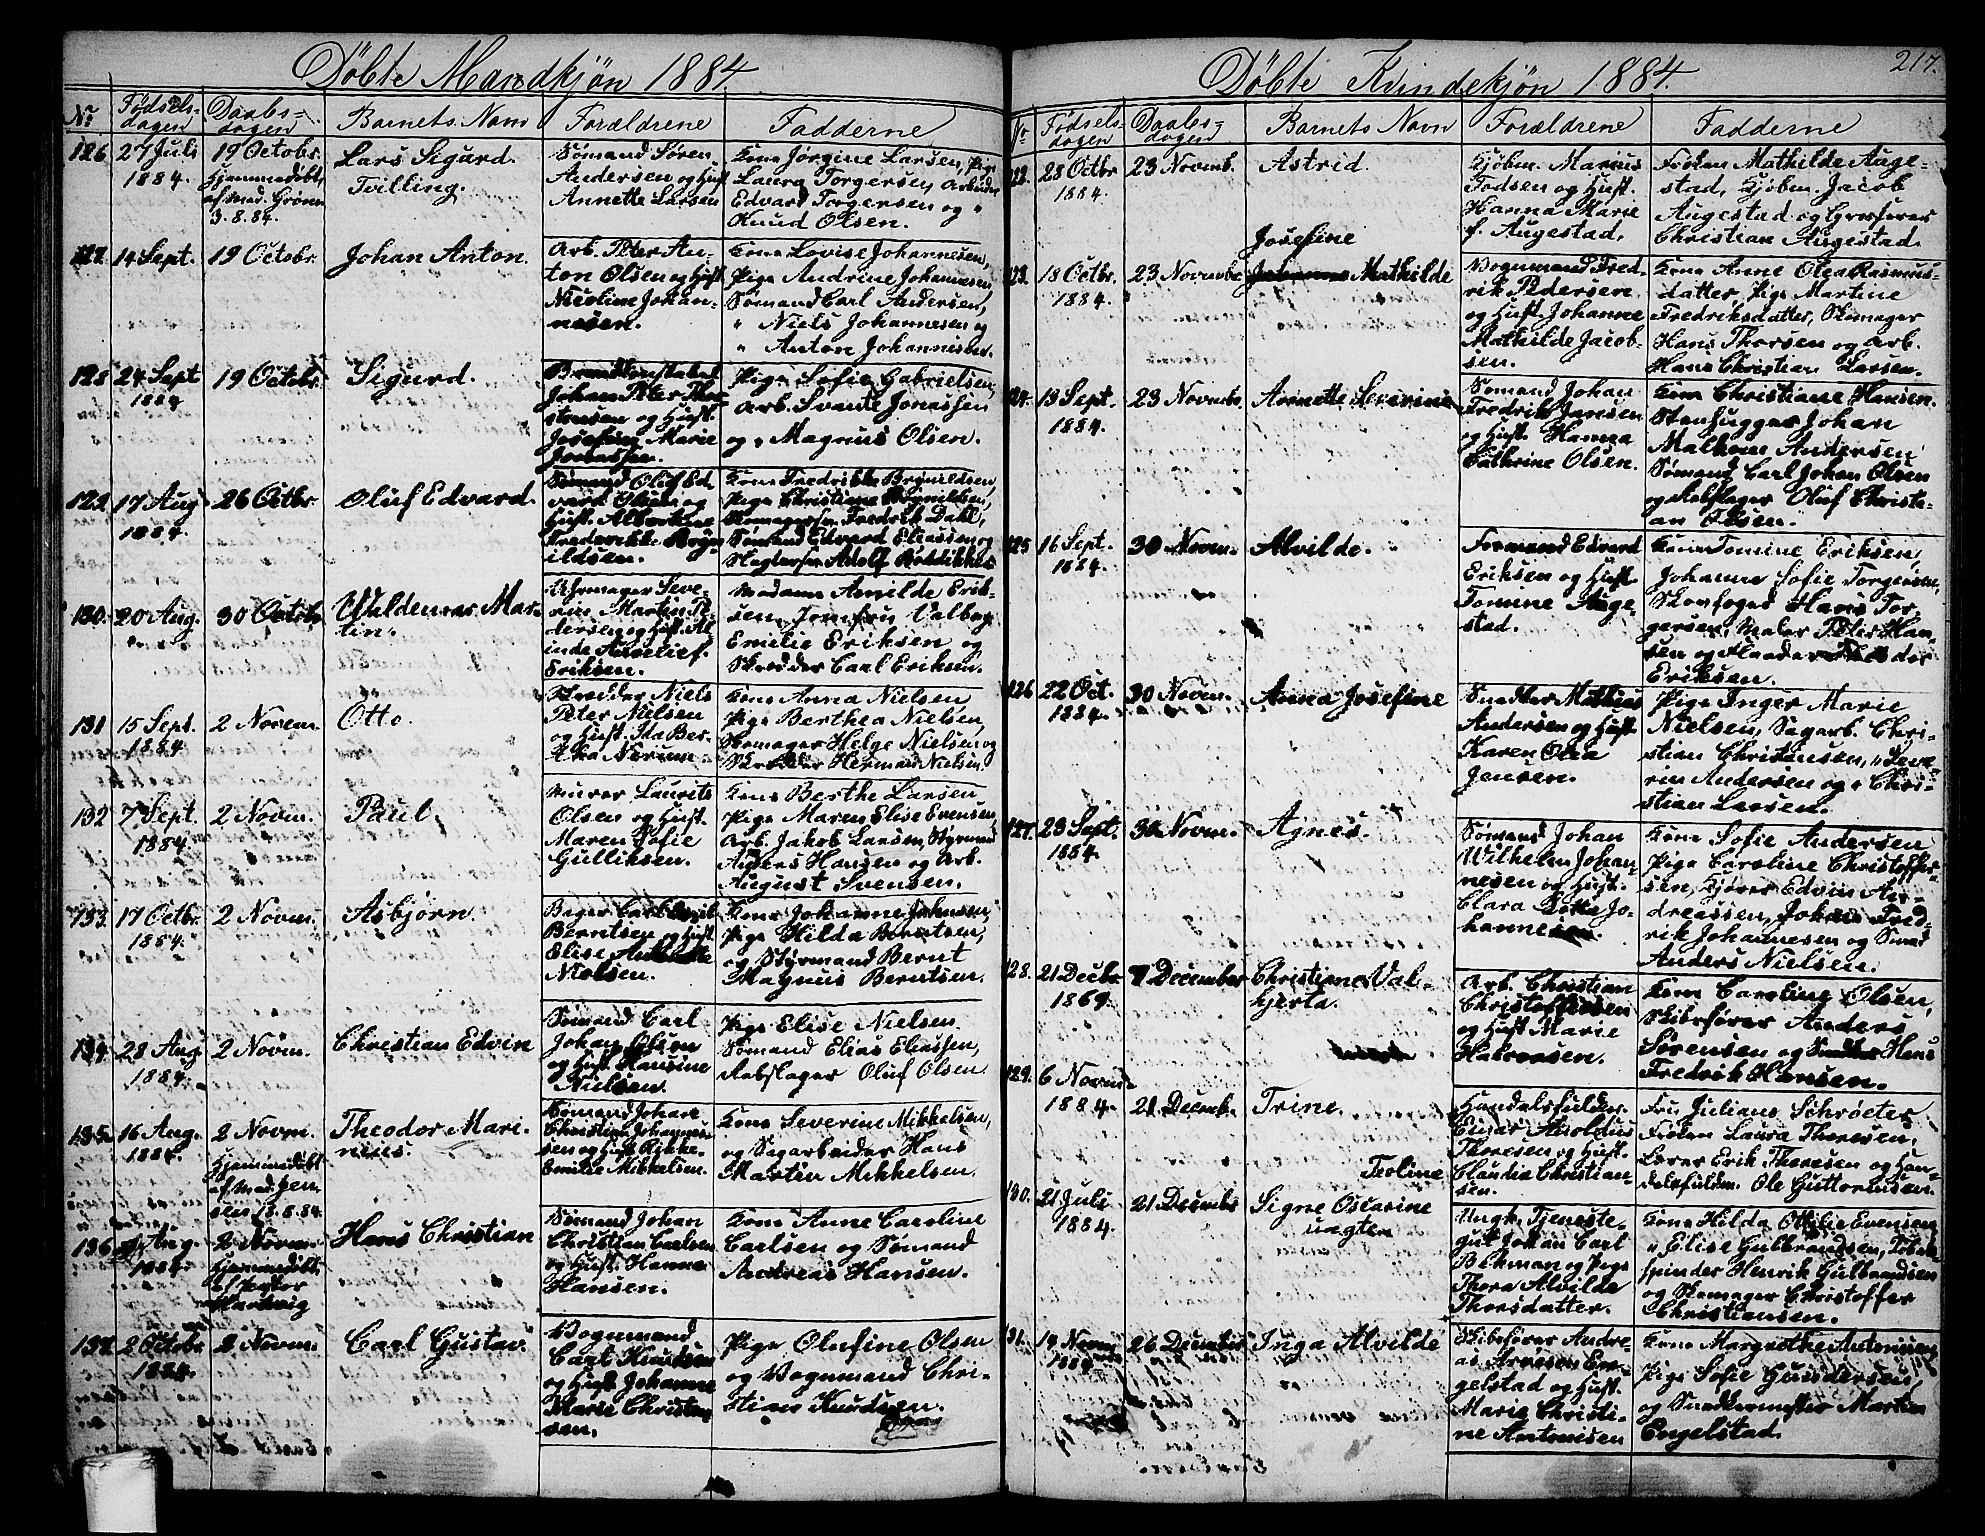 Døbte Mandkjøn 1884.
No Fødsels-dagen Daabs-dagen Barnets Navn Forældrene Fadderne
126. 27 Juli 1884. 19 Octobr. Hjemmedøbt af Mad. Grønn 3.8.84.
Lars Sigurd. Tvilling.
Sømand Søren
Andersen og Hust.
Annette Larsen
Kone Jørgine Larsen, Pige
Laura Torgersen, Arbeider
Edvard Torgersen og "
Knud Olsen.
127. 14 Sept. 19 Octobr. Johan Anton.
Arb. Peter An-
ton Olsen og Hust.
Nicoline Johan-
nesen.
Kone Lovise Johannesen,
Pige Andrine Johannesen
Sømand Carl Andersen,
" Niels Johannesen og
" Anton Johannesen.
128 24 Sept 1884 19 Octobr. Sigurd.
Johan Peter Tho-
stensen og Hust.
Josefine Marie
Jonassen.
Pige Sofie Gabrielsen,
Arb. Svante Jonassen
og " Magnus Olsen.
129 17 Aug 1884. 26 Octbr Oluf Edvard.
Sømand Oluf Ed
vard Olsen og
Hust. Albertine
Frederikke Bryn
ildsen.
Kone Fredrikke Brynildsen,
Pige Christiane Brynildsen,
Skomagersv. Fredrik Dahl,
Sømand Edvard Eliassen og
Slagtersv. Adolf Böddikker
130. 20 Aug. 30 Octobr Valdemar Mar-
tin.
Uhrmager Seve-
rin Martin Pe-
dersen og Hust. Al
inde Aurelie f.
Eriksen.
Madame Amilde Erik-
sen, Jomfru Valborg
Emilie Eriksen og
Skrædder Carl Eriksen.
131 15 Sept. 1884 2 Novem. Otto.
Skrædder Niels
Peter Nielsen
og Hust. Ida Ber-
tha Nerum.
Kone Anna Nielsen
Pige Berthea Nielsen,
Skomager Helge Nielsen og
Skrædder Herman Nielsen.
132 7 Sept. 1884. 2 Novm. Paul.
Murer Laurits
Olsen og Hust.
Maren Sofie
Gulliksen.
Kone Berthe Larsen
Pige Maren Elise Evensen
Arb. Jakob Larsen, Styrmand
Anders Hansen og Arb.
August Svensen.
133. 17 Octbr. 1884. 2 Novm. Asbjørn.
Bager Carl Emil
Berntsen og Hust.
Elise Antonette
Nielsen.
Kone Johanne Johnsen,
Pige Hilda Berntsen,
og Styrmand Bernt
Magnus Berntsen.
134. 28 Aug 1884. 2 Novm. Christian Edvin
Sømand Carl
Johan Olsen
og Hust. Hansine
Nielsen.
Pige Elise Nielsen.
Sømand Elias Eliassen,
Rebslager Oluf Olsen
135. 16 Aug. 1884. 2 Novm. Hjemmedøbt af Mad. Jensen 18.8.84.
Theodor Mari-
nius.
Sømand Johan
Christian Johannes-
sen og Hust. Rikke
Emilie Mikkelsen.
Kone Severine Mikkelsen,
og Sagarbeider Hans
Martin Mikkelsen.
136 Aug 1884. 2 Novm Hjemmedøbt af Pastor Hartvig
Hans Christian
Sømand Johan
Christian Carlsen
og Hust. Hanna
Hansen.
Kone Anne Caroline
Carlsen og Sømand
Andreas Hansen.
137 2 Octobr 1884. 2 Novm. Carl Gustav.
Vognmand
Carl Knudsen
og Hust. Johanne
Marie Christen
sen.
Pige Olufine Olsen
og Vognmand Chri-
stian Knudsen.
Døbte Kvindekjøn 1884.
217.
No Fødsels-dagen Daabs-dagen Barnets Navn Forældrene Fadderne
122. 28 Octbr 1884. 23 Novemb. Astrid.
Kjøbm. Marius
Todsen og Hust.
Hanna Marie
f. Augestad.
Frøken Mathilde Auge-
stad, Kjøbm. Jacob
Augestad og Gross­erer
Christian Augestad.
123. 18 Octbr. 1884. 23 Novembr Josefine
Johanne Mathilde
Vognmand Fred-
rik Pedersen
og Hust. Johanne
Mathilde Jacob-
sen.
Kone Anne Olea Rasmus-
datter, Pige Martine
Fredriksdatter, Skomager
Hans Thorsen og Arb.
Hans Christian Larsen.
124. 13 Sept. 1884. 23 Novmbr. Annette Severine
Sømand Johan
Fredrik Jansen
og Hust. Hanna
Cathrine Olsen.
Kone Christiane Hansen.
Stenhugger Johan
Malkom Andersen
Sømand Carl Johan Olsen
og Rebslager Oluf Christi-
an Olsen.
125 16 Sept. 1884. 30 Novem. Alvilde.
Formand Edvard
Eriksen og Hust
Tomine Auge-
stad.
Kone Tomine Eriksen,
Johanne Sofie Torgersen,
Skovfoged Hans Tor-
gersen, Maler Peter Han-
sen og
Eriksen.
126 22 Oct. 1884. 30 Novem. Anna Josefine
Snedker Mathias
Andersen og Hust
Karen Olea
Jensen.
Pige Inger Marie
Nielsen, Sagarb. Chri-
stian Christensen, " Seve-
rin Andersen og " Chri-
stian Larsen.
127. 23 Sept. 1884. 30 Novm. Agnes.
Sømand Johan
Wilhelm Johan-
nesen og Hust.
Clara Lotte Jo-
hannesen.
Kone Sofie Andersen
Pige Caroline Christoffer-
sen, Kjører Edvin An-
dreassen, Johan Fred-
rik Johannesen og Sømand
Anders Nielsen.
128. 21 Decbr 1869. 7 December Christiane Val-
hjerta.
Arb. Christian
Christoffersen
og Hust Marie
Halvorsen.
Kone Caroline Olsen,
Skibsfører Anders
Sørensen og Snedker Hans
Fredrik Hansen.
129. 6 Novm 1884. 21 Decemb. Trine.
Handelsfuldm.
Einar Arnoldus
Thoresen og Hust.
Claudia Christian-
sen.
Fru Juliane Schrøeter
Frøken Laura Thoresen,
Lærer Erik Thoresen og Han-
delsfuldm. Ole Guttormsen.
130. 21 Juli 1884. 21 Decmbr Teoline
Signe Oscarine
uægte
Ungk. Tjeneste-
gut Johan Carl
Bekman og Pige
Thora Alvilda
Thorsdatter.
Kone Hilda Ottilie Evensen
" Elise Gulbrandsen, Tobak
spinder Henrik Gulbrandsen
og Skomager Christoffer
Christiansen.
131. 14 Novm 1884 26 December Inga Alvilde
Skibsfører Andre-
as Arnesen En-
gelstad og Hust.
Marie Christi-
ne Antonisen
Kone Margrethe Antonisen,
Pige Sofie Gundersen,
og Snedkermester Martin
Engelstad.